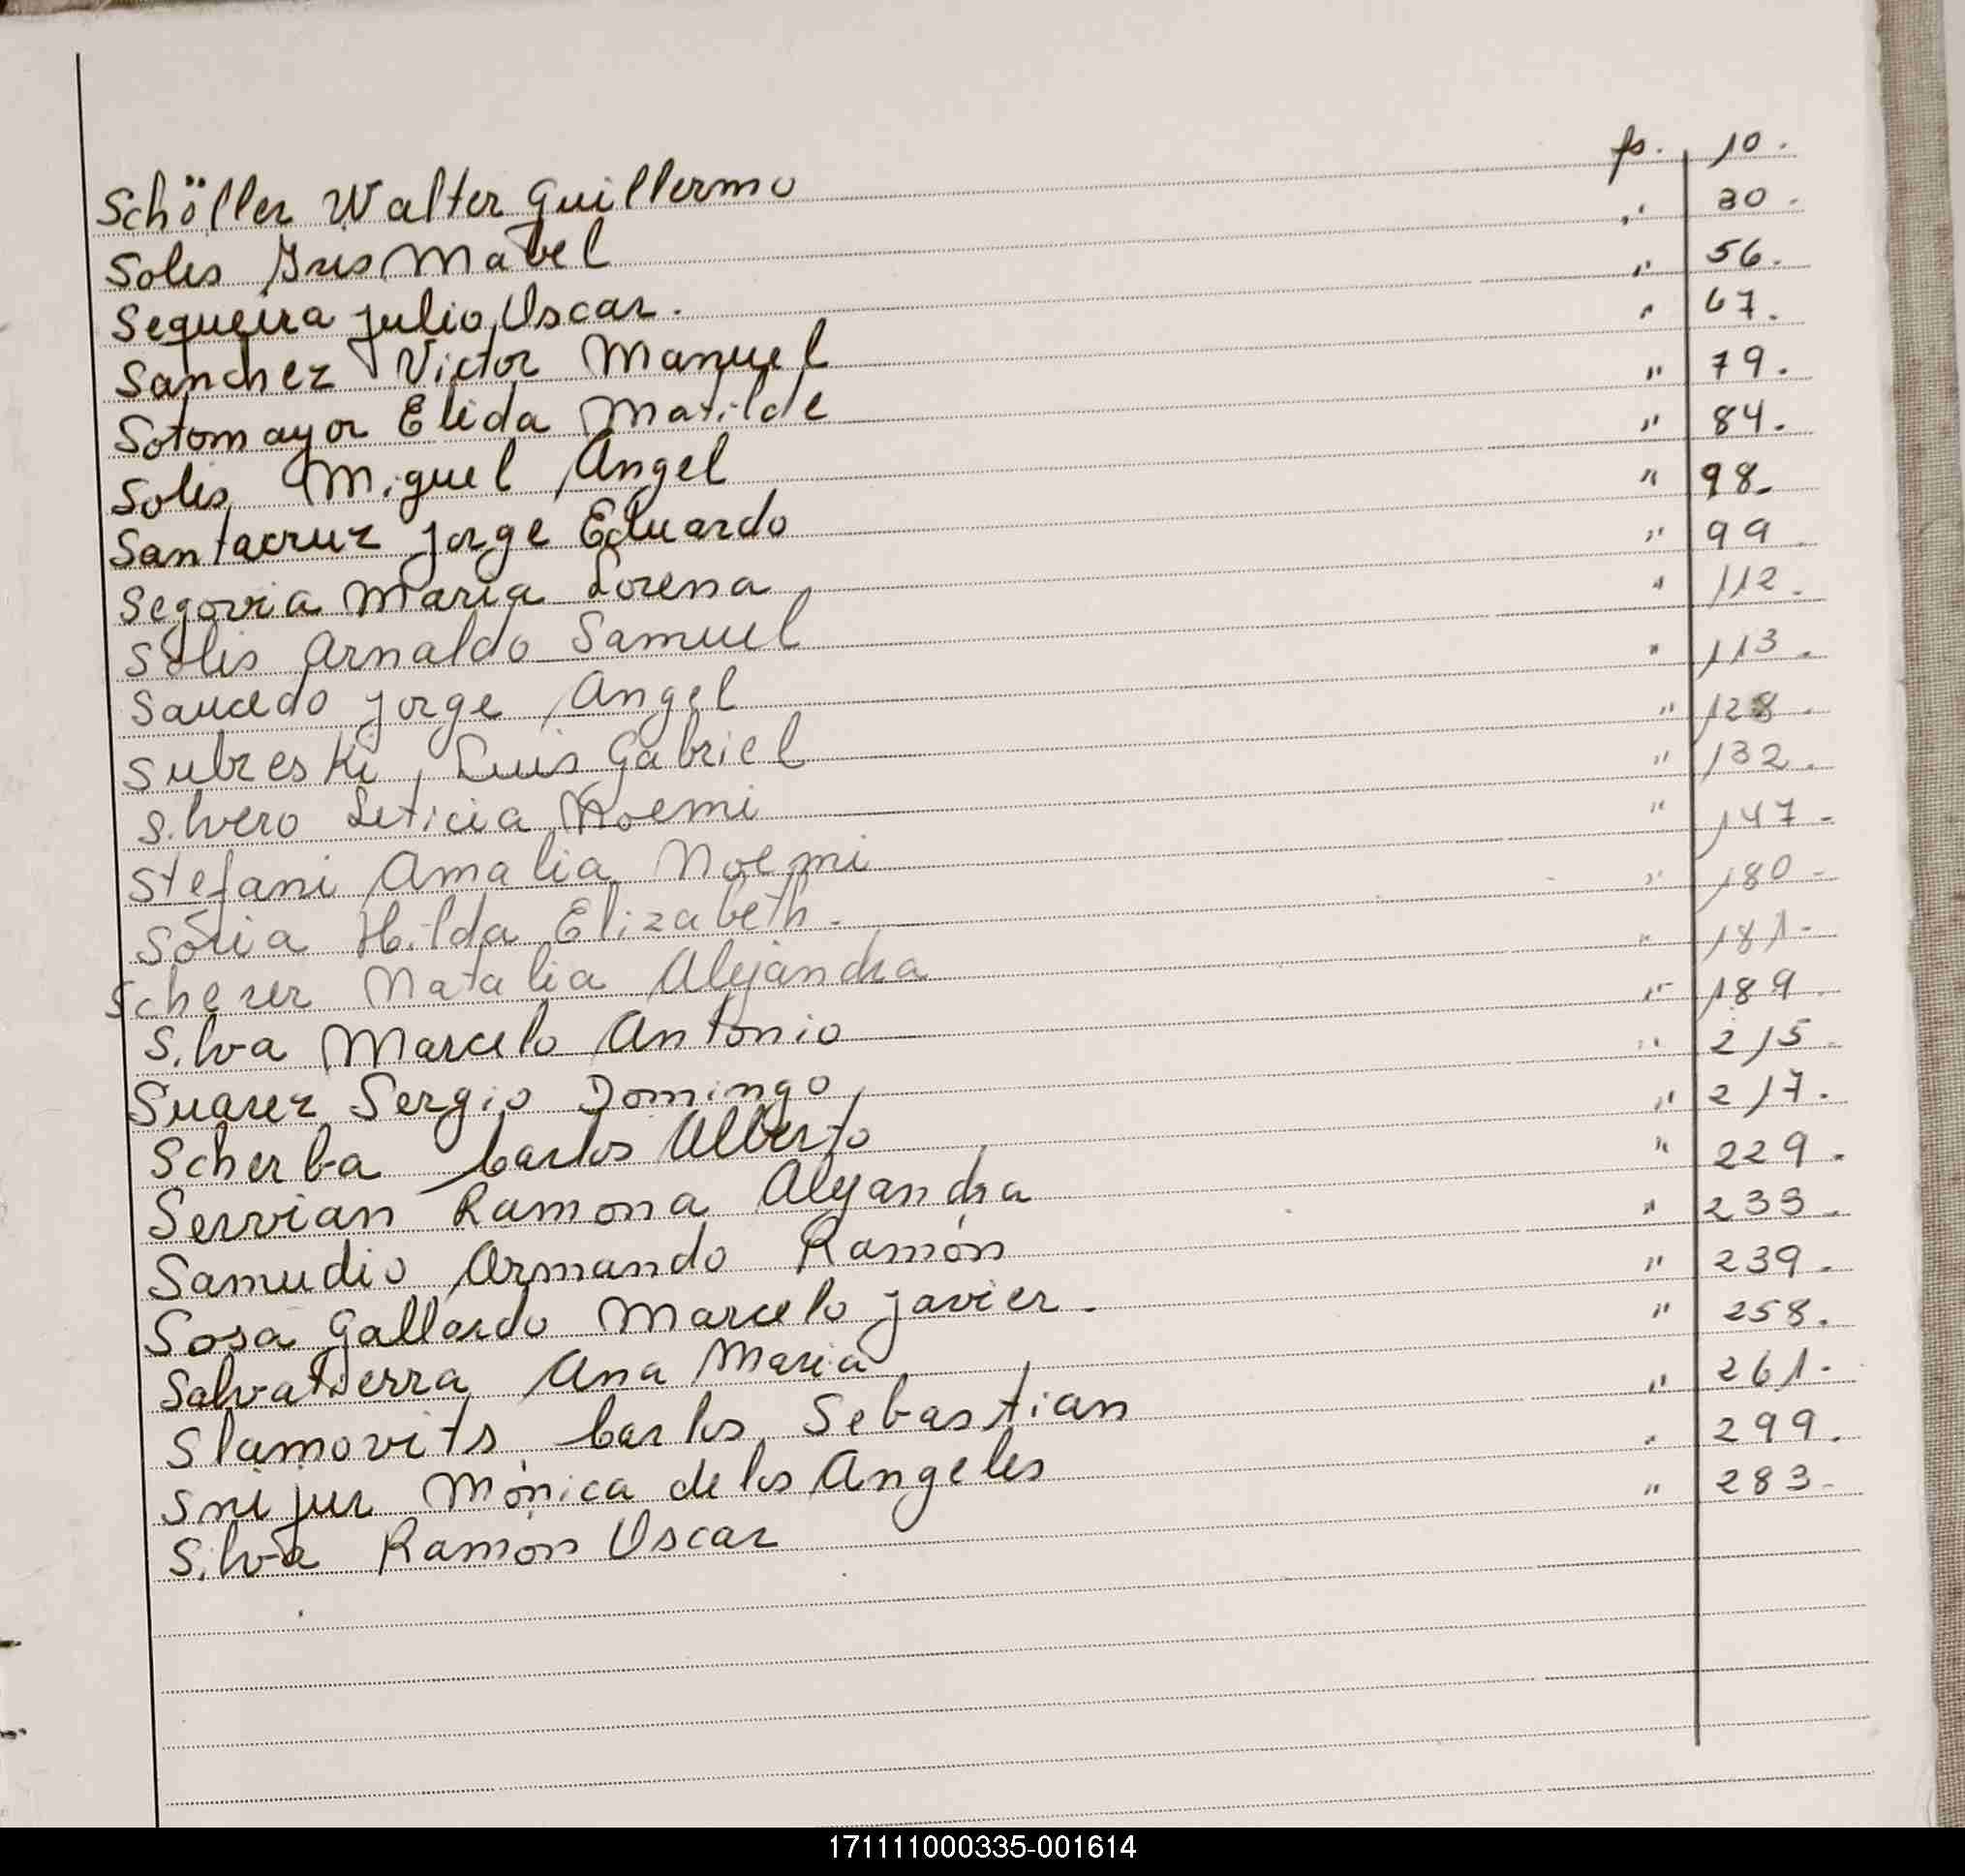 Schöller Walter Guillermo fs. 10.
Solis Iris Mabel " 30.
Sequeira Julio Oscar. " 56.
Sanchez Victor Manuel " 67.
Sotomayor Elida Matilde " 79.
Solis Miguel Angel " 84.
Santacruz Jorge Eduardo " 98.
Segovia Maria Lorena " 99
Solis Arnaldo Samuel " 112.
Saucedo Jorge Angel " 113.
Subreski, Luis Gabriel " 128.
Silvero Leticia Noemi " 132.
Stefani Amalia Noemi " 147.
Soria Hilda Elizabeth. " 180.
Scherer Natalia Alejandra " 181.
Silva Marcelo Antonio " 189.
Suarez Sergio Domingo " 215.
Scherba Carlos Alberto " 217.
Servian Ramona Alejandra " 229.
Samudio Armando Ramón " 233.
Sosa Gallardo Marcelo Javier. " 239.
Salvatierra Ana Maria " 258.
Slamovits Carlos Sebastian " 261.
Snijur Mónica de los Angeles " 299.
Silva Ramón Oscar " 283.
171111000335-001614